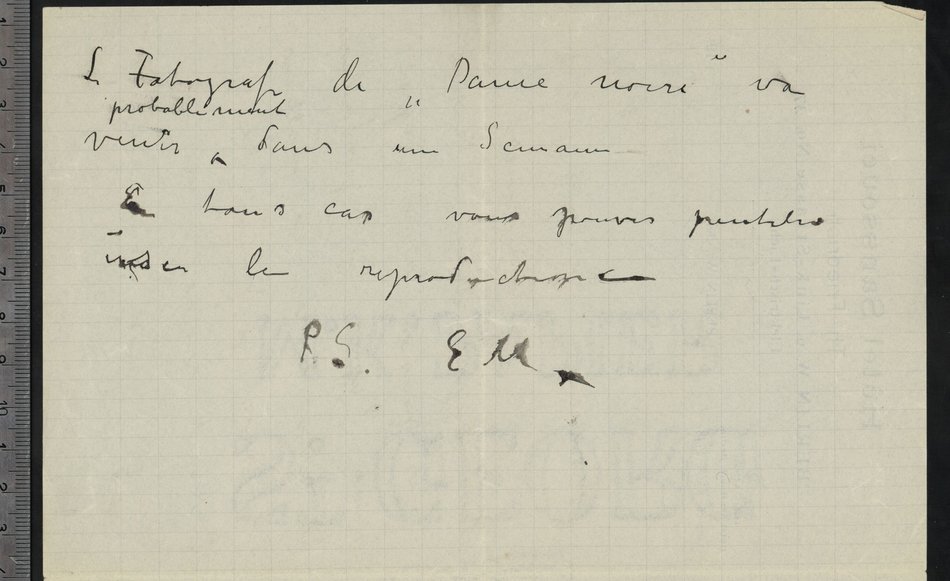 L Fotograf de „Dame noire" va
probablement
venir dans une Semaine
En tous cas vous pouves peutetre
la reproduction
P.S. E M.